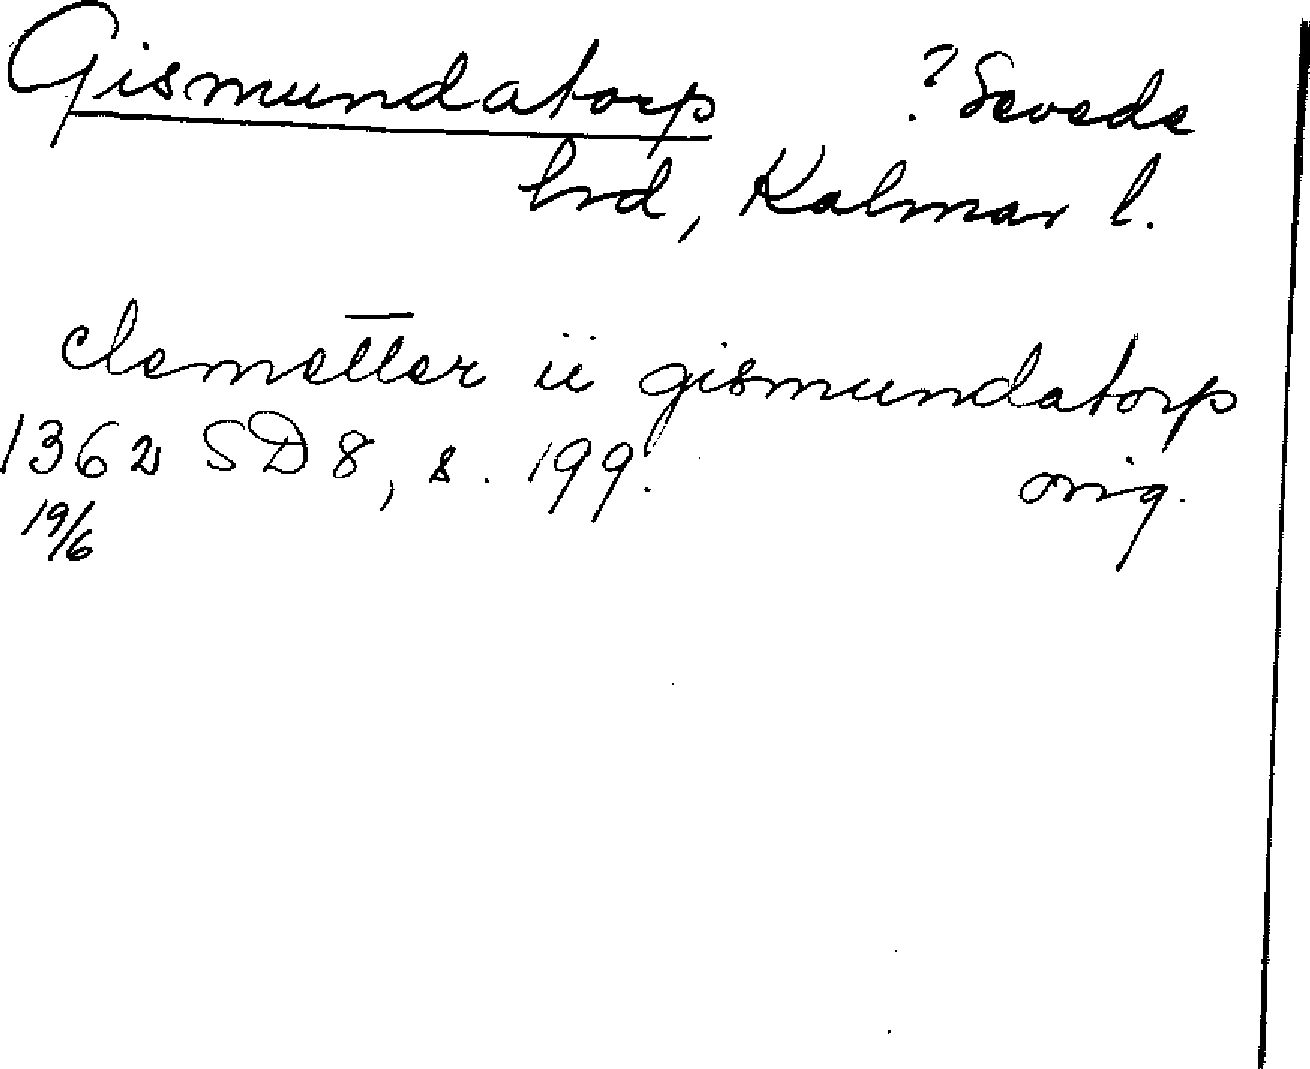 Gismundatorp ? Sevede
hrd, Kalmar l.
clemetter ii gismundatorp
1362 SD 8, s. 199. orig.
19/6